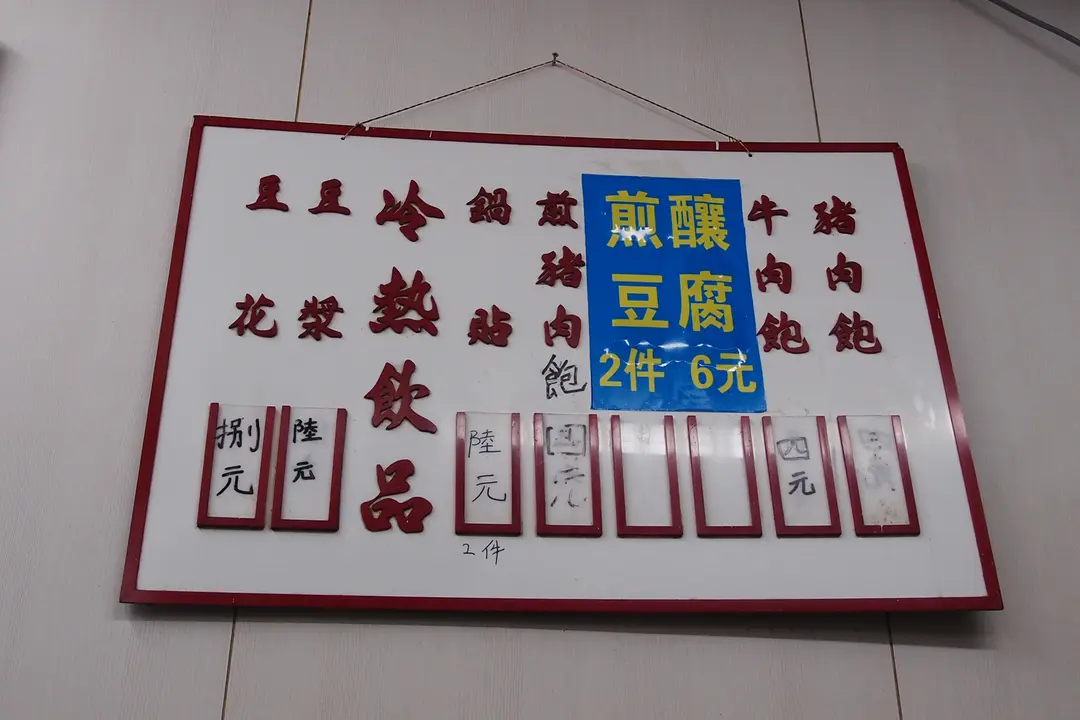 豬肉飽
牛肉飽
四元
煎釀
豆腐
2件 6元
煎豬肉飽
四元
鍋貼
陸元
2件
冷熱飲品
豆漿
陸元
豆花
捌元